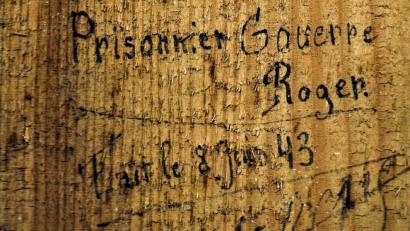 Prisonnier Gouerre
Roger.
Fait le 8 Juin 43